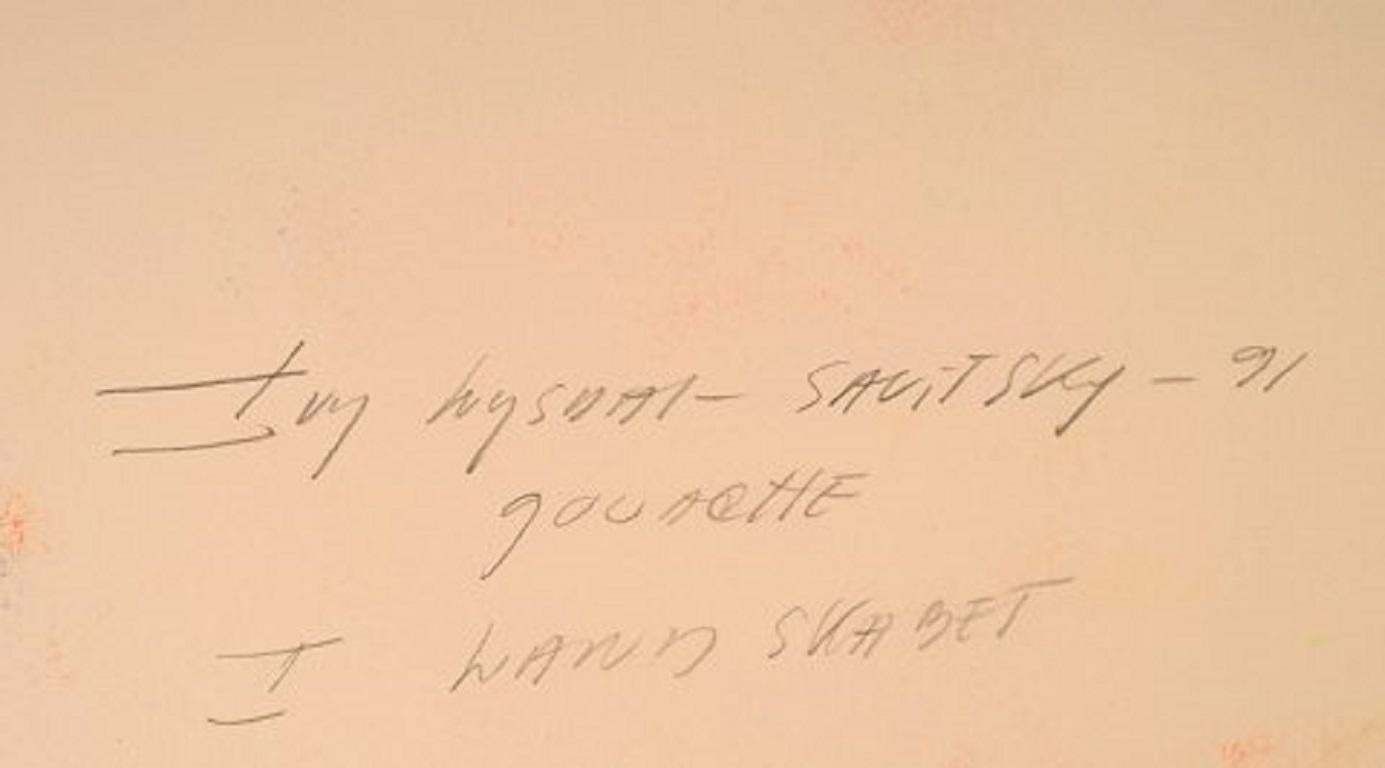 Ivy Lysdal - SAVITSKY - 91
gOUACHE
I LANDSKABET